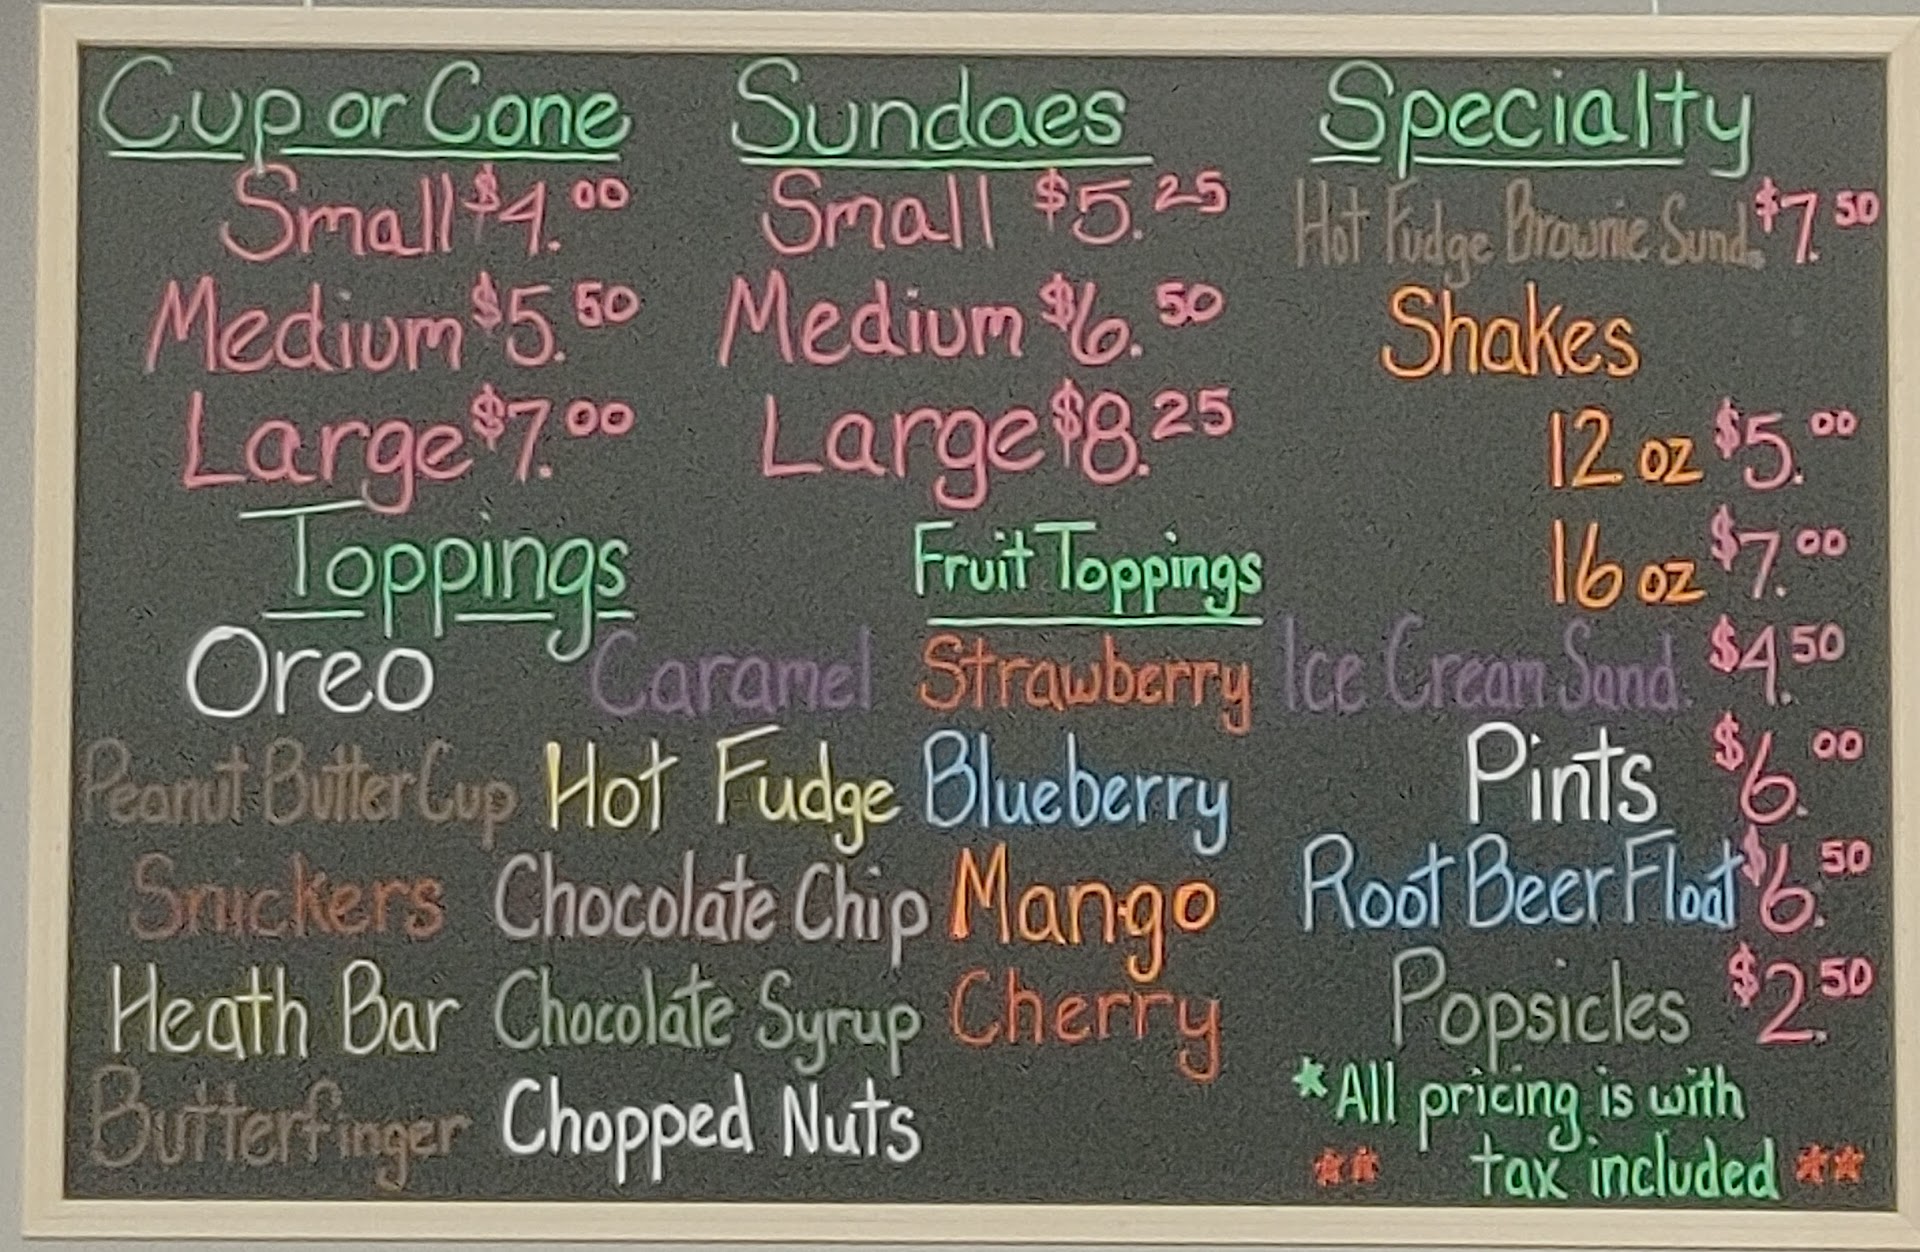 Cup or Cone
Small $4.00
Medium $5.50
Large $7.00
Sundaes
Small $5.25
Medium $6.50
Large $8.25
Toppings
Oreo
Peanut Butter Cup
Snickers
Heath Bar
Butterfinger
Caramel
Hot Fudge
Chocolate Chip
Chocolate Syrup
Chopped Nuts
Fruit Toppings
Strawberry
Blueberry
Mango
Cherry
Specialty
Hot Fudge Brownie Sund. $7.50
Shakes
12 oz $5.00
16 oz $7.00
Ice Cream Sand. $4.50
Pints $6.00
Root Beer Float $6.50
Popsicles $2.50
*All pricing is with
** tax included **